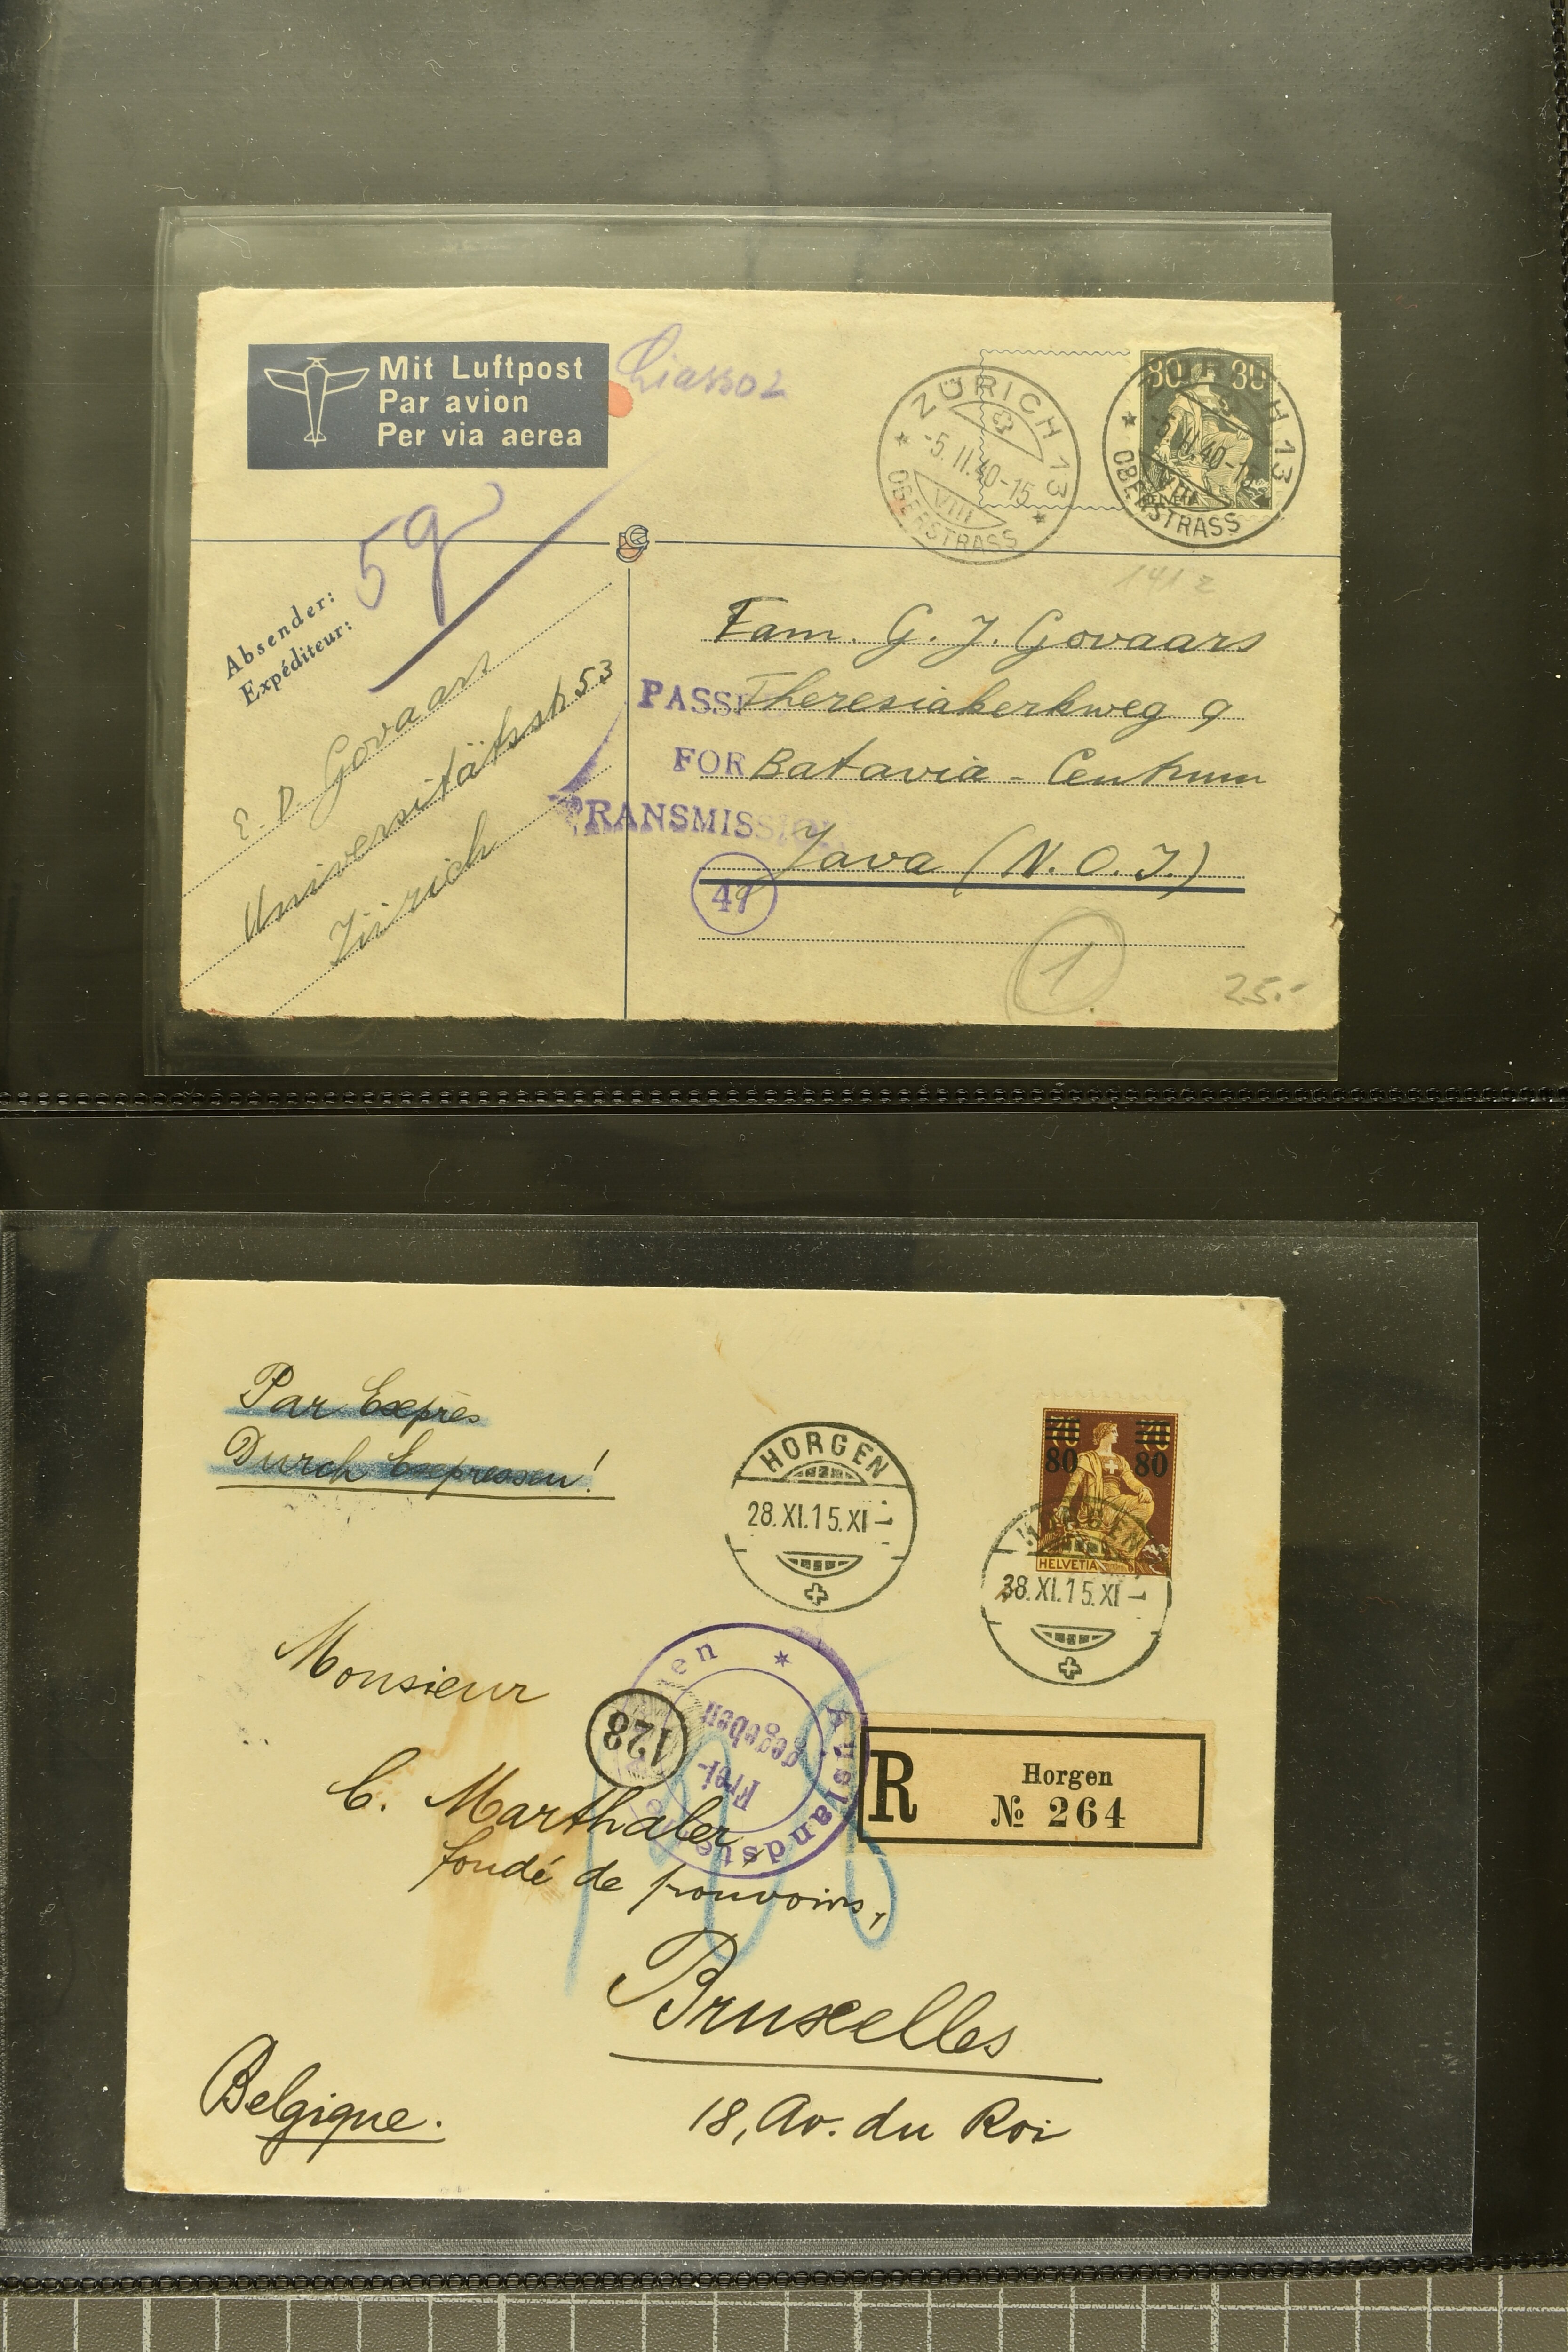 Mit Luftpost
Par avion
Per via aerea
Chiasso 2
5g
ZÜRICH 13
-5.II.40-15
VIII
OBERSTRASS
80 80
ZÜRICH 13
-5.II.40-15
VIII
HELVETIA
OBERSTRASS
Absender:
Expéditeur:
E. D. Govaars
Universitätsstr. 53
Zürich
141 z
Fam. G. J. Govaars
Theresiakerkweg 9
Batavia - Centrum
Java (N.O.I.)
PASSED
FOR
TRANSMISSION
1
25.-
Par Exprès
Durch Expressen!
HORGEN
28.XI.15.XI-
70 70
80 80
HELVETIA
HORGEN
28.XI.15.XI-
Monsieur
C. Marthaler
fondé de pouvoirs,
Bruxelles
18, Av. du Roi
Belgique.
128
Frei-
gegeben
R
Horgen
№ 264